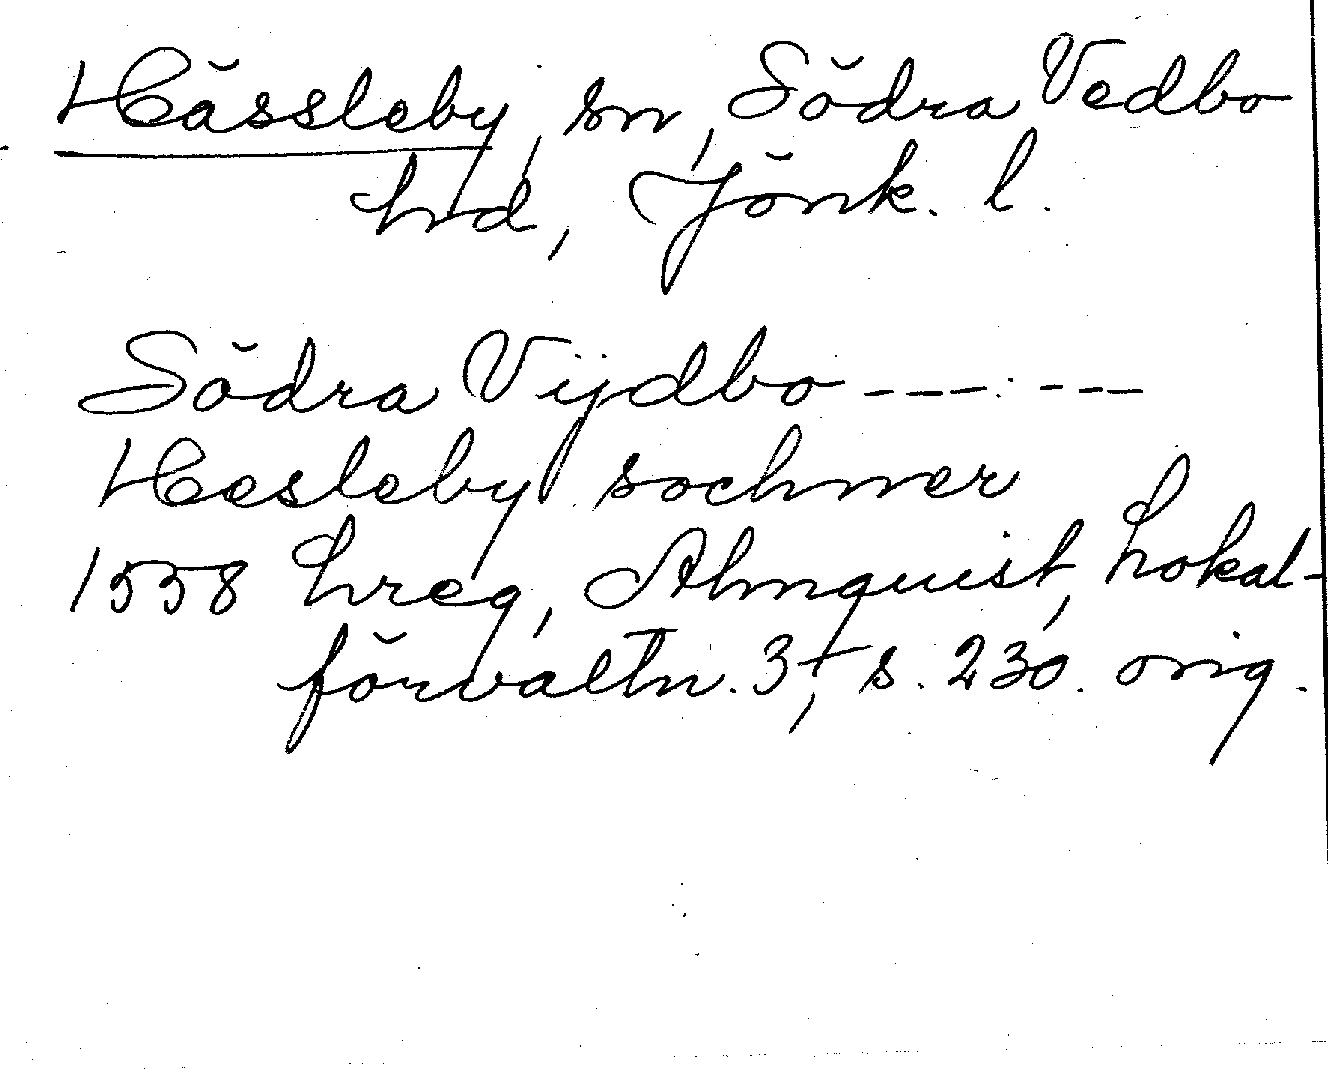 Hässleby, sn, Södra Vedbo
hd, Jönk. l.
Södra Vijdbo --- ---
Hesleby sochner
1558 hreg, Almquist, Lokal-
förvaltn. 3, s. 230. orig.